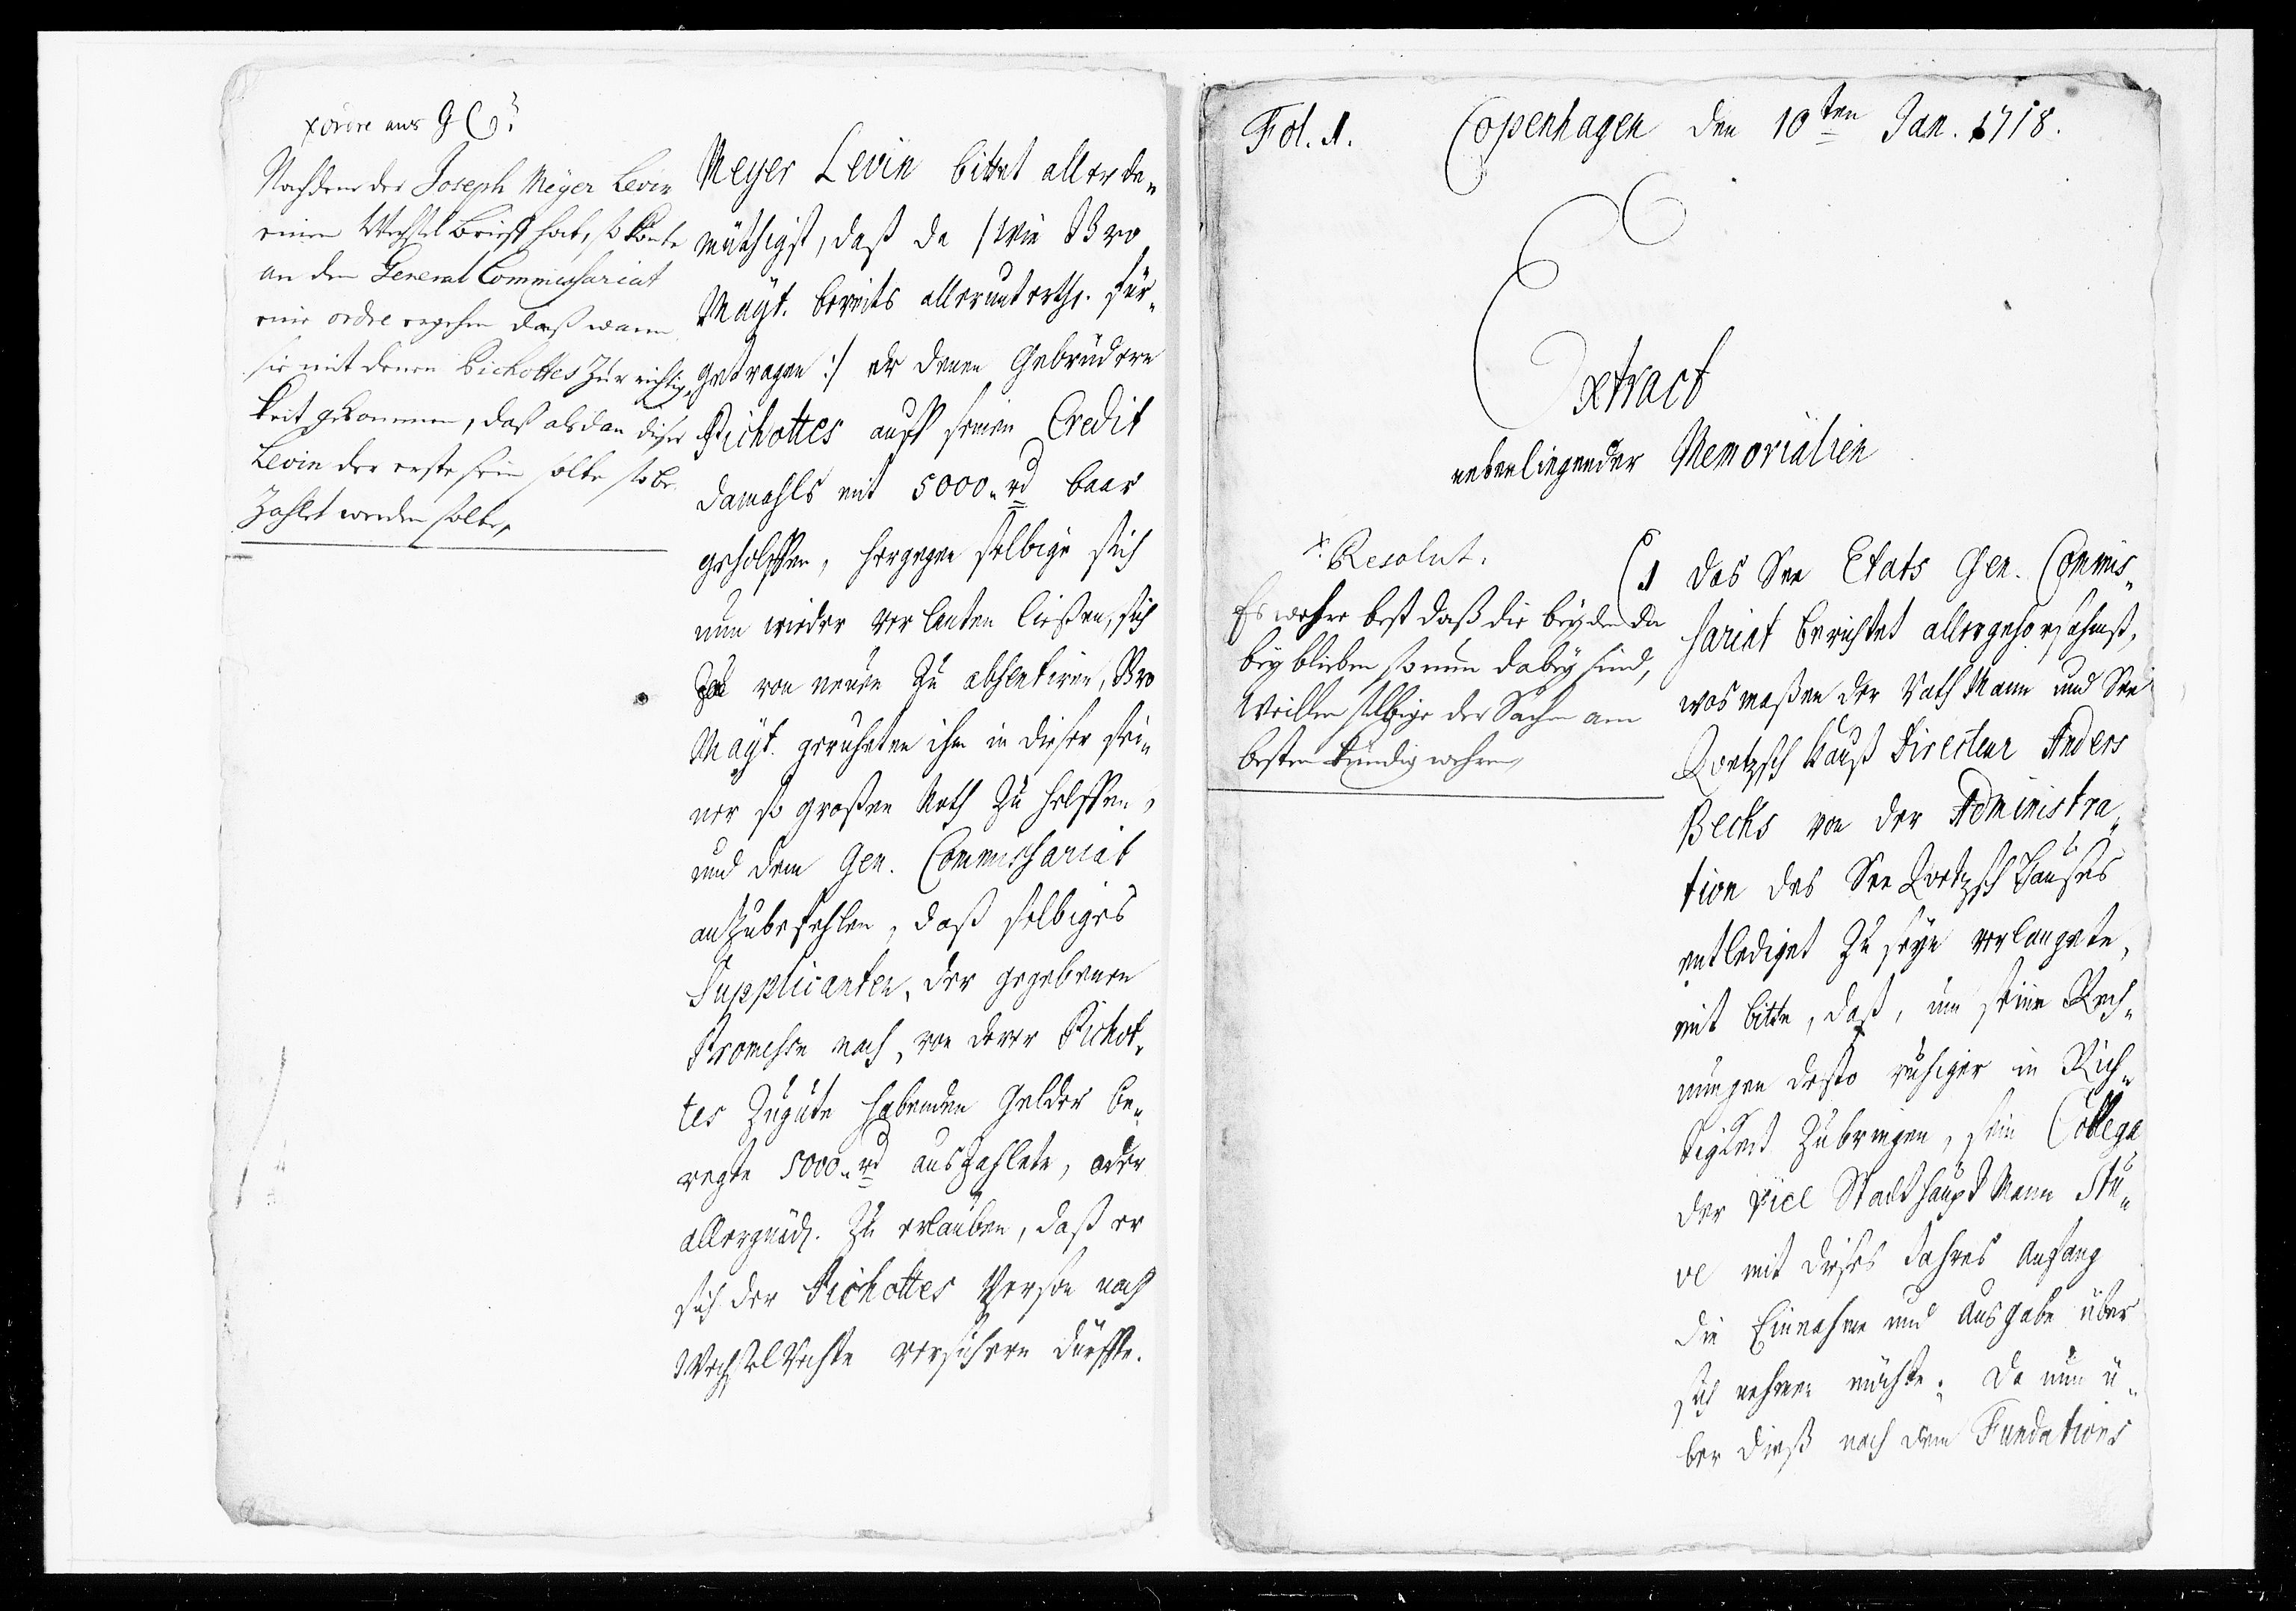 xordre ans G C:
Nachdem der Joseph Meyer Levin
einen Wechsel Brieff hat, so könte
an dem General Commissariat
eine ordre ergehen daß wann
sie mit denen Pichottes zur richtig„
keit gekommen, daß als dan dieser
Levin der erste sein solte so be„
zahlet werden solte,
Meyer Levin bittet allerde„
müthigst, daß da /: wie Ewr
Mayt. bereits allerunterth. für„
getragen :/ er denen Gebrüdern
Pichottes auff seinen Credit
damahls mit 5000 rd baar
geholffen, hergegen selbige sich
nun wieder verlauten ließen, sich
von neuen zu absentiren, Ewr
Mayt. geruheten ihm in dieser sei„
ner so großen Noth zu helffen,
und dem Gen. Commissariat
anzubefehlen, daß selbiges
Supplicanten, der gegebenen
Promesse nach, von derer Pichot„
tes zugute habenden Gelder be„
regte 5000 rd auszahlete, oder
allergnäd. zu erlauben, daß er
sich der Pichottes Person nach
Wechsel Rechte versichern dürffte.
Fol. 1. Copenhagen den 10ten Jan. 1718.
Extract
nebenliegender Memorialien
x. Resolut.
Es wehre best daß die beyden da
bey blieben so nun dabey sind,
Weillen selbige der Sachen am
besten kündig wehren,
1 Das See Etats Gen. Commis„
sariat berichtet allergehorsahmst,
was maßen der Rath Mann und See
Qvetzsch Hauß Directeur Anders
Becks von der Administra„
tion des See Qvetzsch Hauses
entlediget zu seyn verlangete,
mit bitte, daß, um seine Rech„
nungen desto ruhiger in Rich„
tigkeit zubringen, sein Collega
der Vice Stadthaupt Mann Stu„
ve mit dieses Jahres Anfang
die Einnahme und Ausgabe über
sich nehmen möchte. Da nun ü„
ber dieß nach dem Fundations